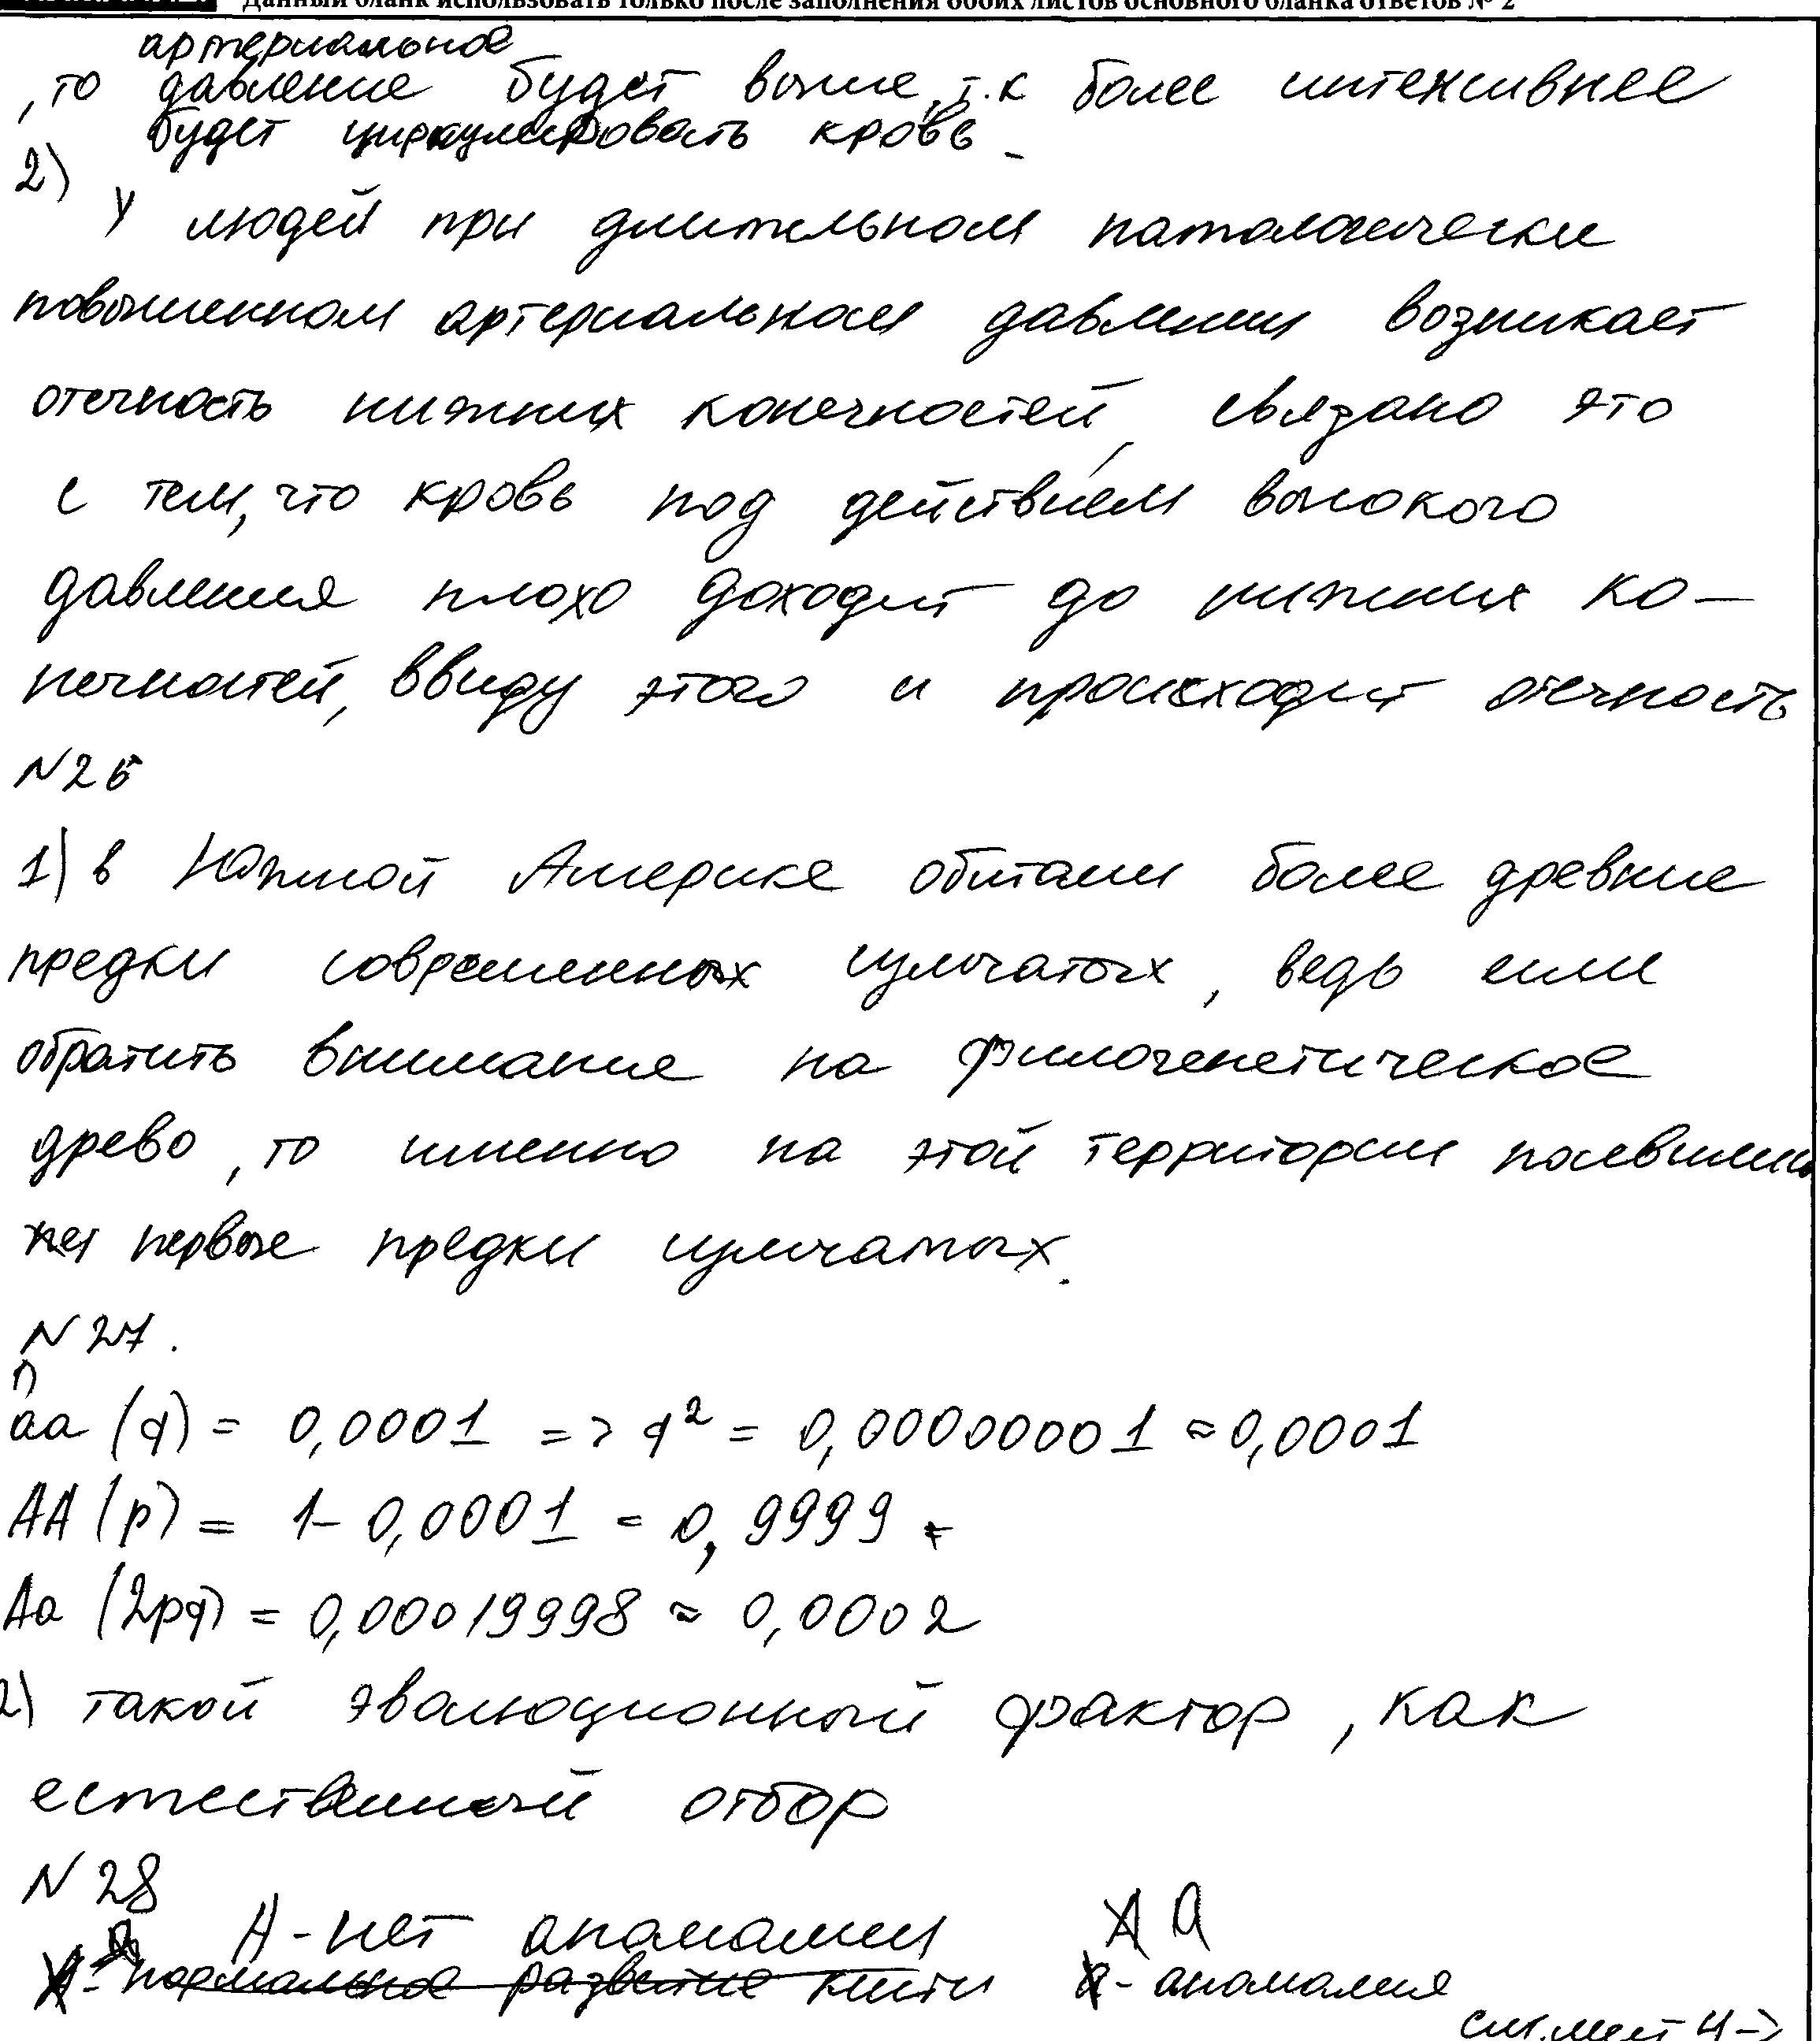 Данный бланк использовать только после заполнения обоих листов основного бланка ответов № 2
артериальное
, то давление будет выше, т.к более интенсивнее
будет циркулировать кровь
2)
У людей при длительном патологически
повышенном артериальном давлении возникает
отечность нижних конечностей, связано это
с тем, что кровь под действием высокого
давления плохо доходит до нижних ко-
нечностей, ввиду этого и происходит отечность
N26
1) в Южной Америке обитали более древние
предки современных сумчатых, ведь если
обратить внимание на филогенетическое
древо, то именно на этой территории появились
первые предки сумчатых.
N27.
1)
aa (q) = 0,0001 => q² = 0,00000001 ≈ 0,0001
AA (p) = 1- 0,0001 = 0,9999
Aa (2pq) = 0,00019998 ≈ 0,0002
2) такой эволюционный фактор, как
естественный отбор
N28
A - нет аномалии a
нормальное развитие кисти - аномалия
см. лист 4 ->